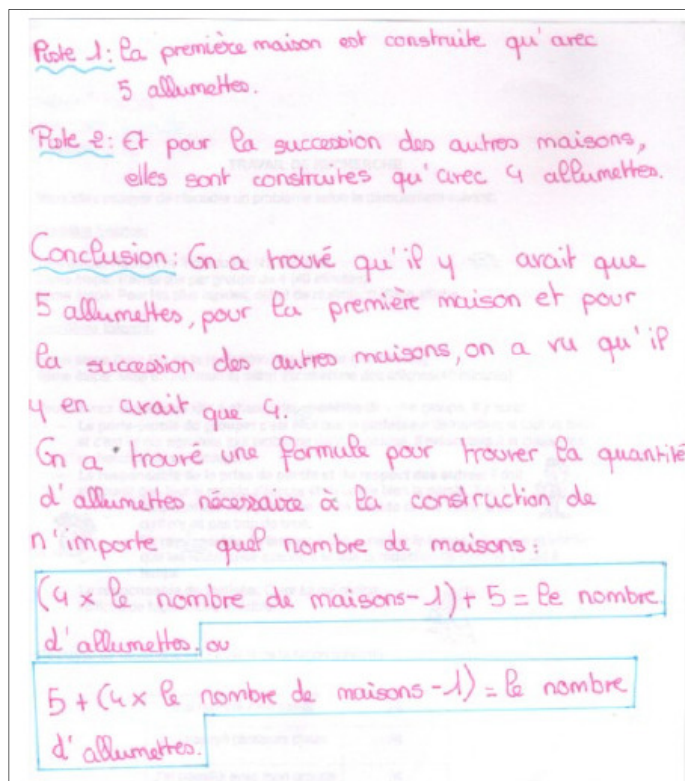 Piste 1: la première maison est construite qu'avec
5 allumettes.
Piste 2: Et pour la succession des autres maisons,
elles sont construites qu'avec 4 allumettes.
Conclusion: On a trouvé qu'il y avait que
5 allumettes, pour la première maison et pour
la succession des autres maisons, on a vu qu'il
y en avait que 4.
On a trouvé une formule pour trouver la quantité
d'allumettes nécessaire à la construction de
n'importe quel nombre de maisons:
(4 x le nombre de maisons-1) + 5 = le nombre
d'allumettes. ou
5 + (4 x le nombre de maisons-1) = le nombre
d'allumettes.